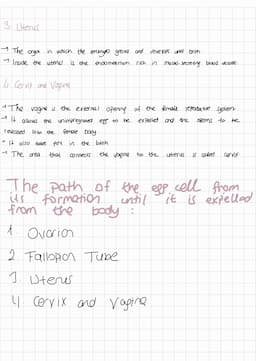 3. Uterus
→ The organ in which the embryo grows and develops until birth
→ Inside the uterus is the endometrium rich in mucus-secreting blood vessels
4. Cervix and Vagina
→ The vagina is the external opening of the female reproductive system
→ It allows the unimpregnated egg to be expelled and the sperms to be
released into the female body
→ It also takes part in the birth
→ The area that connects the vagina to the uterus is called cervix
The path of the egg cell from
its formation until it is expelled
from the body :
1. Ovarion
2. Fallopion Tube
3. Uterus
4. Cervix and Vagina